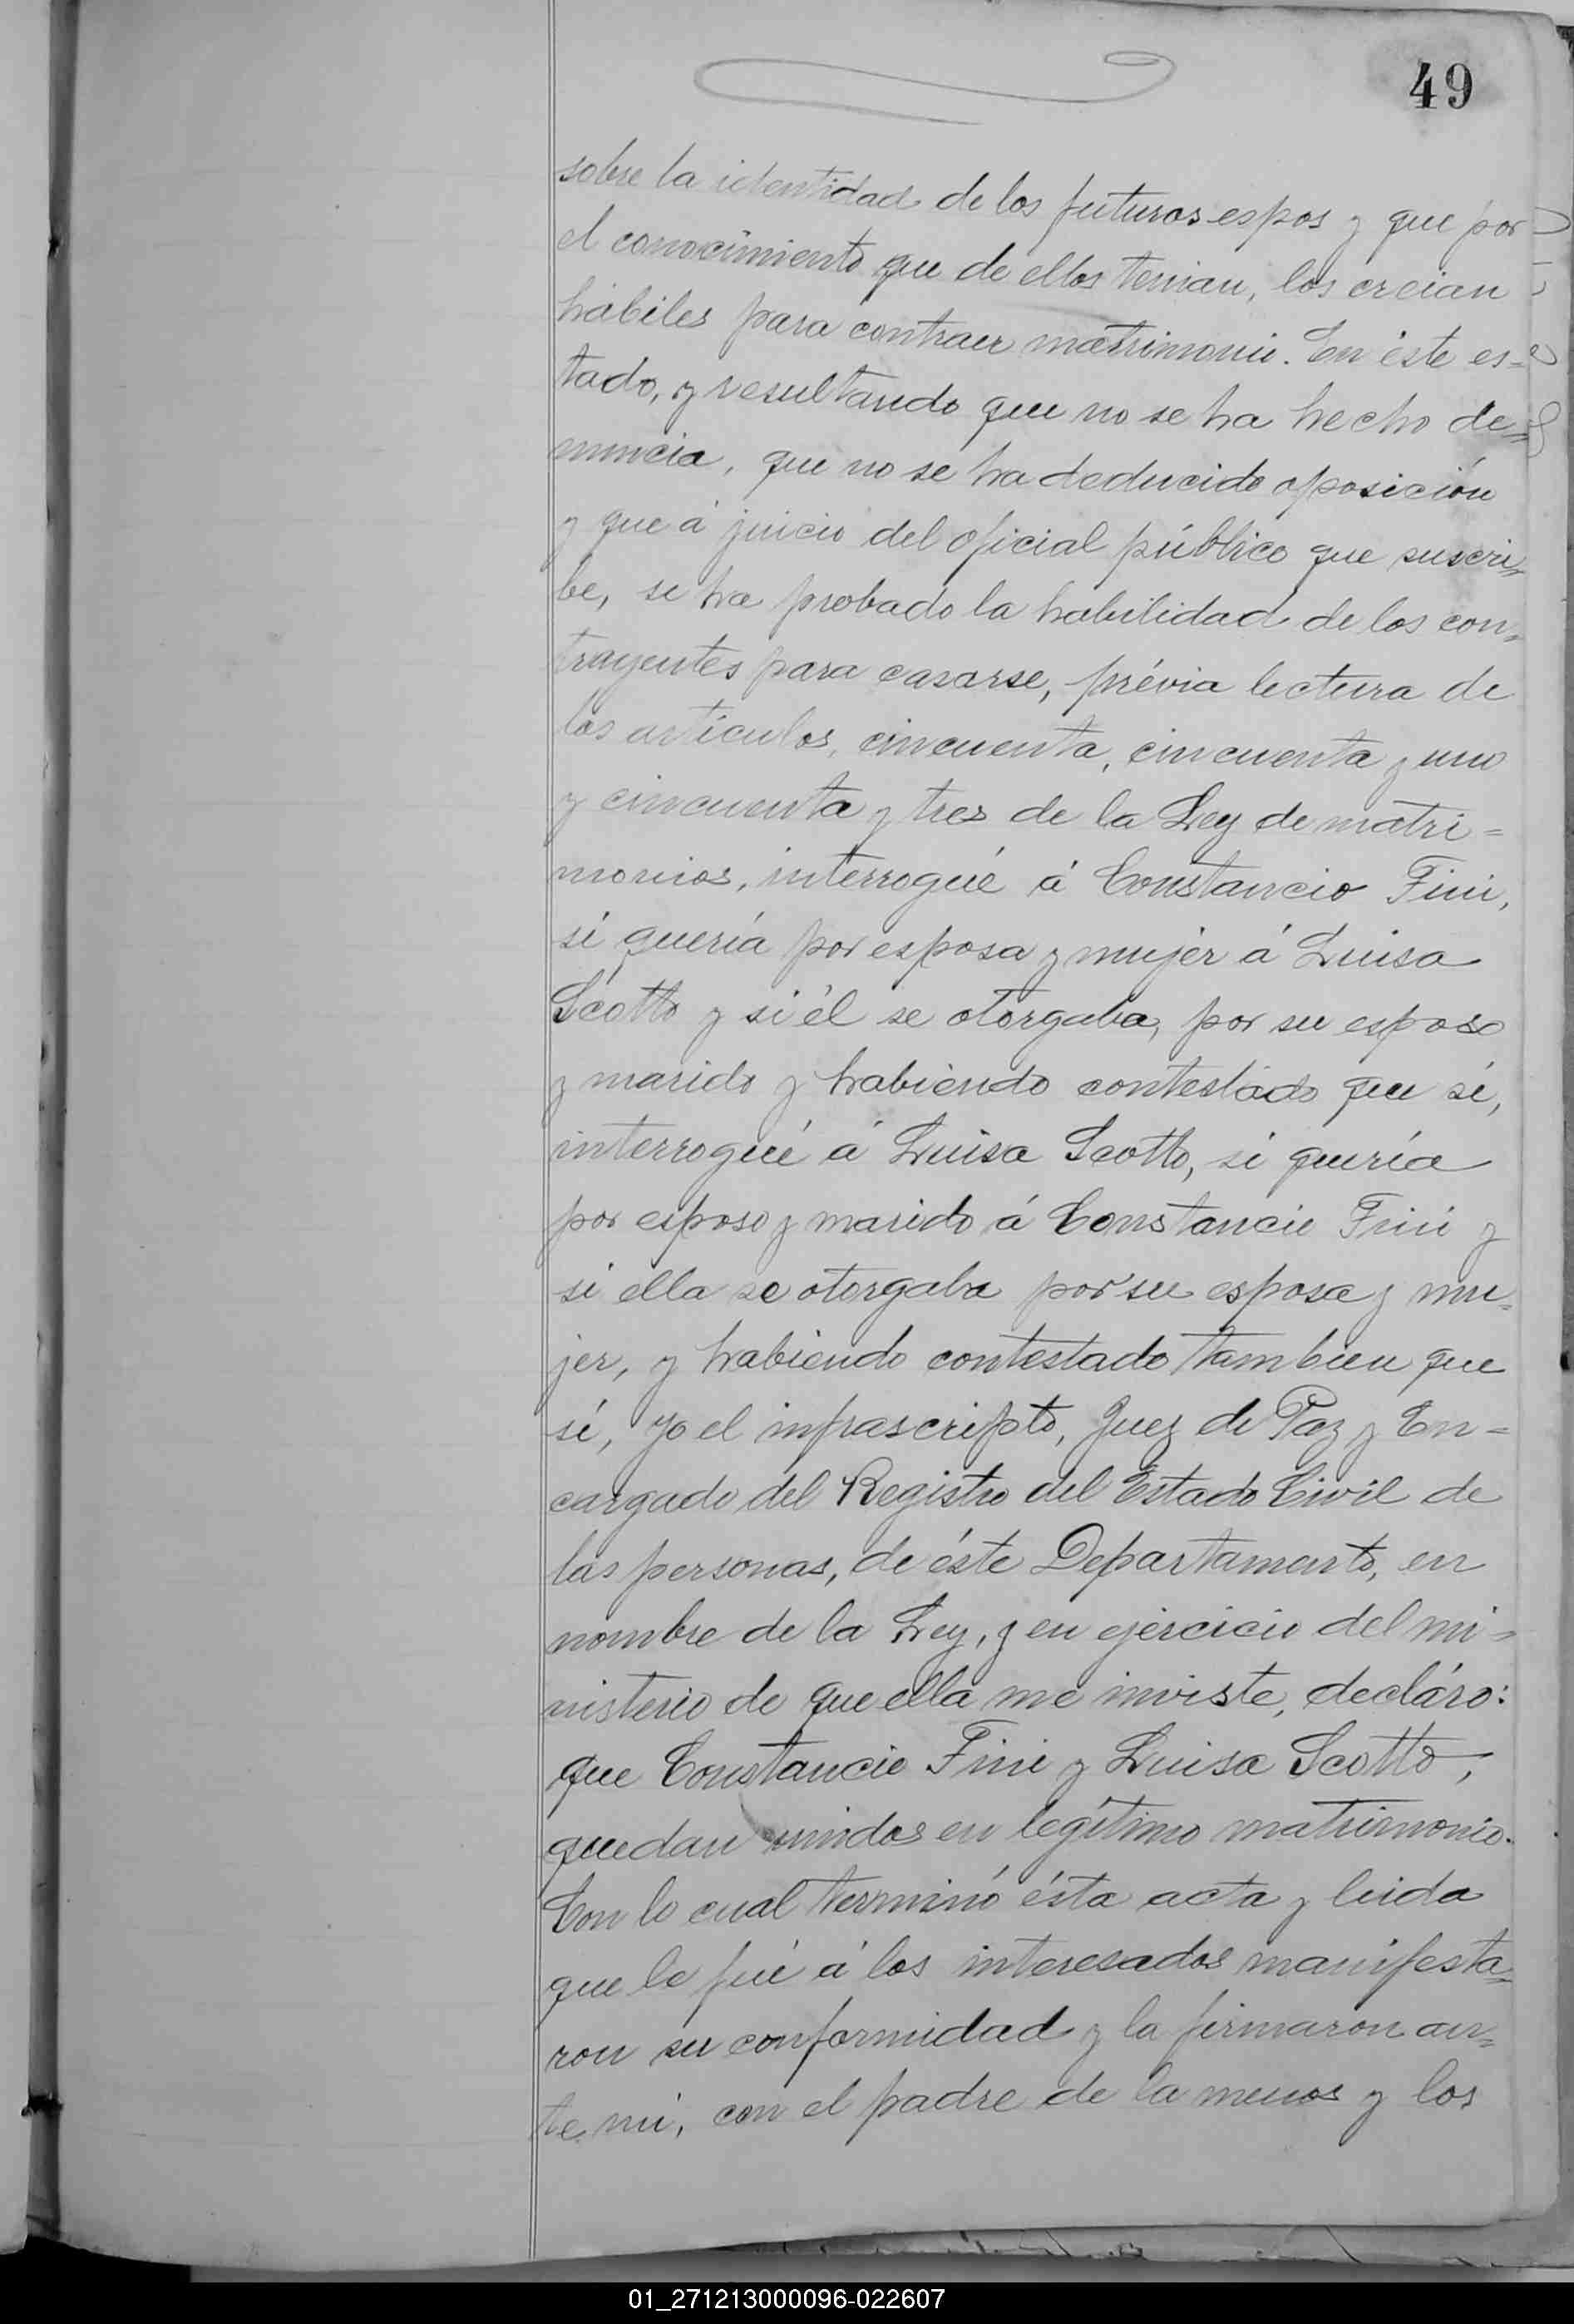 49
sobre la identidad de los futuros espos y que por
el conocimiento que de ellos tenian, los creian
hábiles para contraer matrimonio. En éste es-
tado, y resultando que no se ha hecho de=
nuncia, que no se ha deducido oposición
y que á juicio del oficial público que suscri-
be, se ha probado la habilidad de los con-
trayentes para casarse, prévia lectura de
los artículos, cincuenta, cincuenta y uno
y cincuenta y tres de la Ley de matri=
monios, interrogué á Constancio Fini,
si quería por esposa y mujer á Luisa
Scotto y si él se otorgaba, por su esposo
y marido y habiendo contestado que sí,
interrogué á Luisa Scotto, si quería
por esposo y marido á Constancio Fini y
si ella se otorgaba por su esposa y mu-
jer, y habiendo contestado tambien que
sí, yo el infrascripto, Juez de Paz y En=
cargado del Registro del Estado Civil de
las personas, de éste Departamento, en
nombre de la Ley, y en ejercicio del mi=
nisterio de que ella me inviste, decláro:
que Constancio Fini y Luisa Scotto,
quedan unidos en legítimo matrimonio.
Con lo cual terminó ésta acta y leida
que le fué á los interesados manifesta=
ron su conformidad y la firmaron an=
te mi, con el padre de la menor y los
01_271213000096-022607